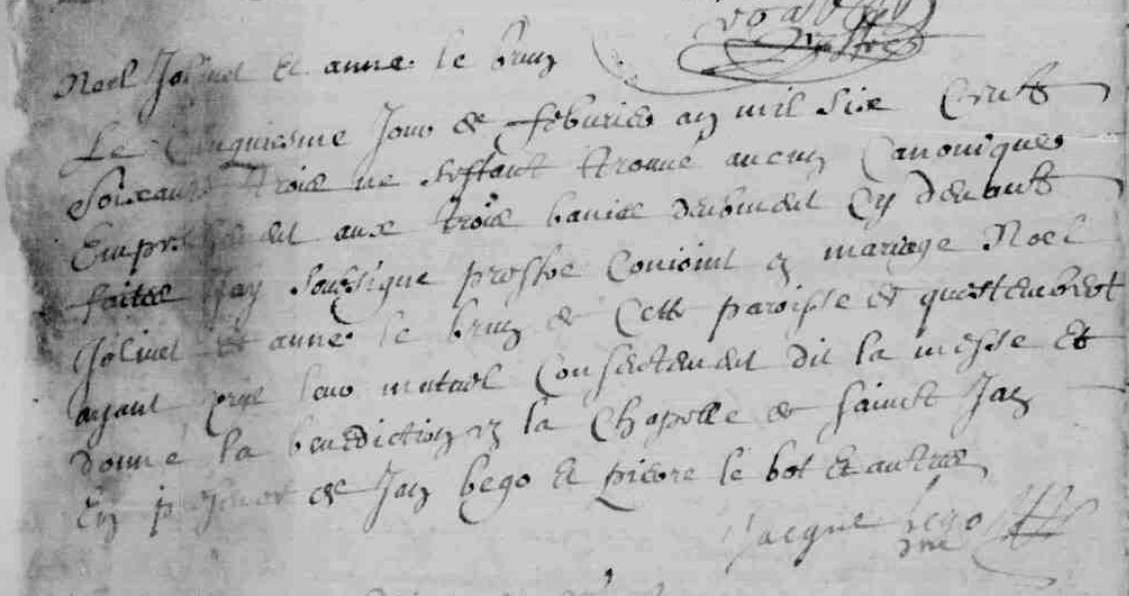 Noel Jolivet et anne le brun
Le cinquiesme Jour de febvrier an mil six cents
soixante trois ne s'estant trouvé aucun canonique
Empeschement aux trois bannies devoment cy devant
faites Jay soussigné prestre conioint en mariage Noel
Jolivet et anne le brun de cette paroisse et
ayant pris leur mutuel consentement dit la messe et
donné la benediction en la chapelle de sainct Jan
En presence de Jan bego et pierre le bot et autres
Jacque bego